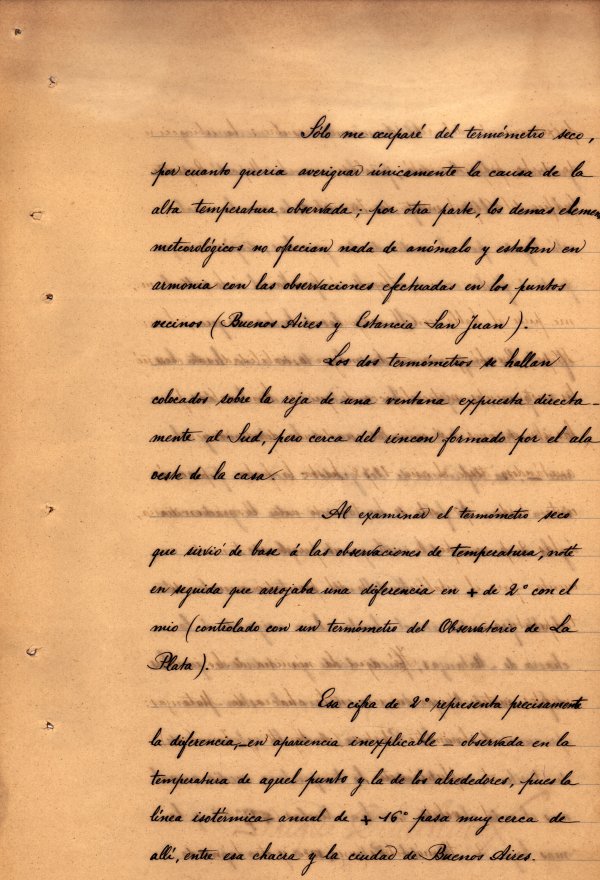 Sólo me ocuparé del termómetro seco,
por cuanto queria averiguar únicamente la causa de la
alta temperatura observada; por otra parte, los demas elemen
meteorológicos no ofrecian nada de anómalo y estaban en
armonia con las observaciones efectuadas en los puntos
vecinos (Buenos Aires y Estancia San Juan).
Los dos termómetros se hallan
colocados sobre la reja de una ventana expuesta directa-
mente al Sud, pero cerca del rincon formado por el ala
oeste de la casa.
Al examinar el termómetro seco
que sirvió de base á las observaciones de temperatura, noté
en seguida que arrojaba una diferencia en + de 2° con el
mio (controlado con un termómetro del Observatorio de La
Plata).
Esa cifra de 2° representa precisamente
la diferencia,-en apariencia inexplicable - observada en la
temperatura de aquel punto y la de los alrededores, pues la
línea isotérmica anual de + 16° pasa muy cerca de
allí, entre esa chacra y la ciudad de Buenos Aires.